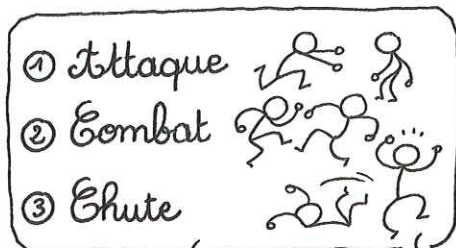 ① Attaque
② Combat
③ Chute